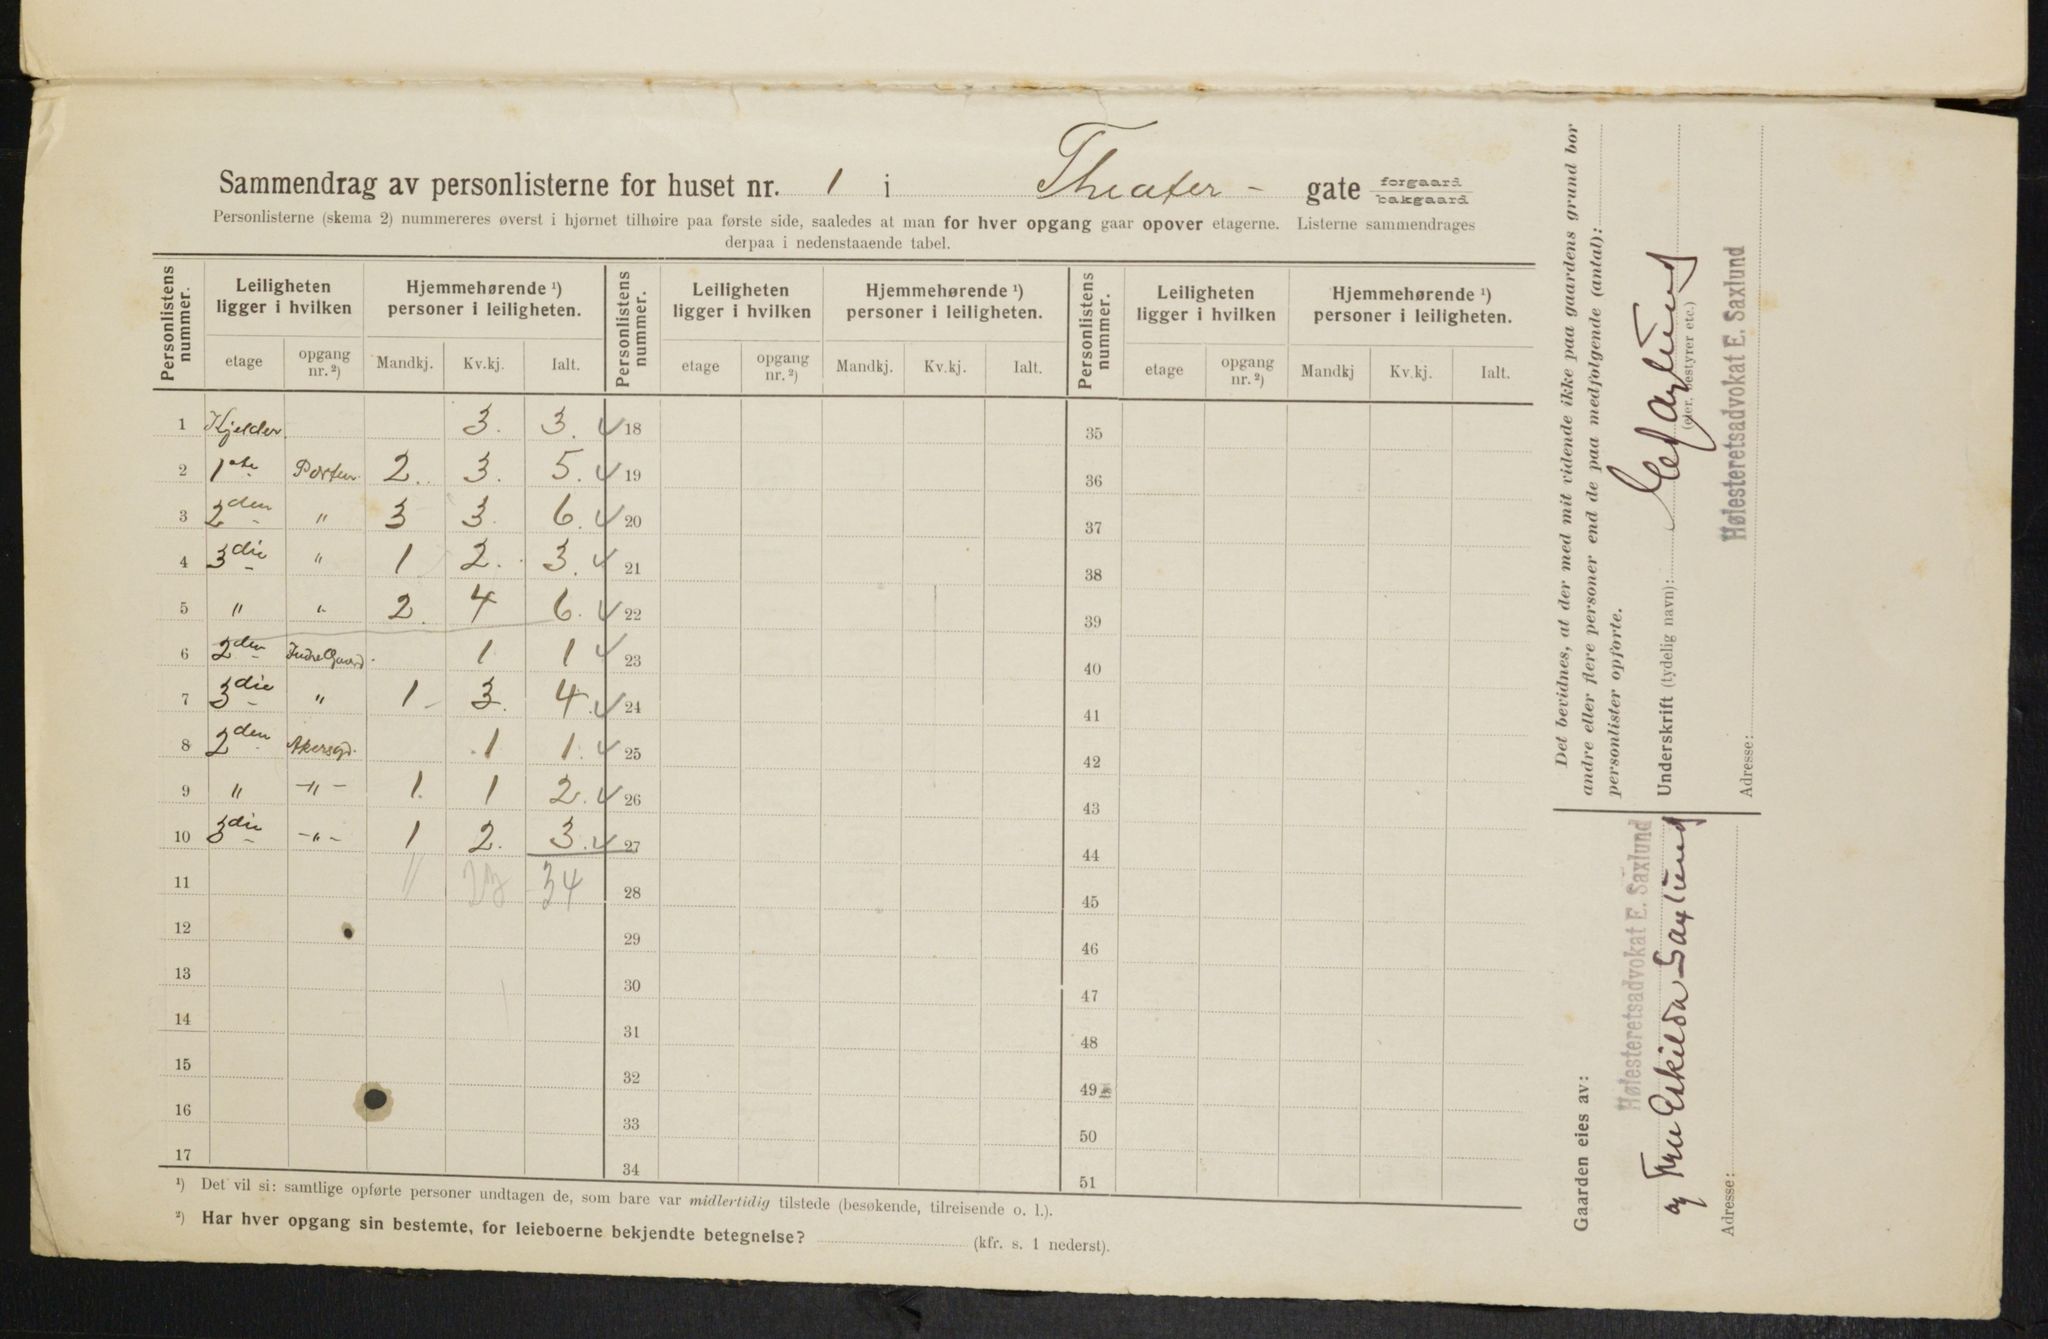 Sammendrag av personlisterne for huset nr. 1 i Theater- gate forgaard bakgaard
Personlisterne (skema 2) nummereres øverst i hjørnet tilhøire paa første side, saaledes at man for hver opgang gaar opover etagerne. Listerne sammendrages
derpaa i nedenstaaende tabel.
Personlistens nummer. Leiligheten ligger i hvilken Hjemmehørende ¹) personer i leiligheten. Personlistens nummer. Leiligheten ligger i hvilken Hjemmehørende ¹) personer i leiligheten. Personlistens nummer. Leiligheten ligger i hvilken Hjemmehørende ¹) personer i leiligheten.
etage opgang nr. ²) Mandkj. Kv.kj. Ialt. etage opgang nr. ²) Mandkj. Kv.kj. Ialt. etage opgang nr. ²) Mandkj Kv.kj. Ialt.
1 Kjelder. 3. 3. 18 35
2 1ste Porten. 2. 3. 5. 19 36
3 2den " 3 3. 6. 20 37
4 3die " 1 2. 3. 21 38
5 " " 2. 4 6. 22 39
6 2den Indre Gaard. 1 1 23 40
7 3die " 1 3. 4. 24 41
8 2den Akersgd. 1 1. 25 42
9 " -"- 1. 1 2. 26 43
10 3die -"- 1 2. 3. 27 44
11 11 23 34 28 45
12 29 46
13 30 47
14 31 48
15 32 49
16 33 50
17 34 51
¹) Det vil si: samtlige opførte personer undtagen de, som bare var midlertidig tilstede (besøkende, tilreisende o. l.).
²) Har hver opgang sin bestemte, for leieboerne bekjendte betegnelse? (kfr. s. 1 nederst).
Det bevidnes, at der med mit vidende ikke paa gaardens grund bor
andre eller flere personer end de paa medfølgende (antal):
personlister opførte.
Underskrift (tydelig navn): Saxlund
(eier, bestyrer etc.)
Høiesteretsadvokat E. Saxlund
Adresse:
Gaarden eies av:
Høiesteretsadvokat E. Saxlund
og Fru Eskilda Saxlund
Adresse: